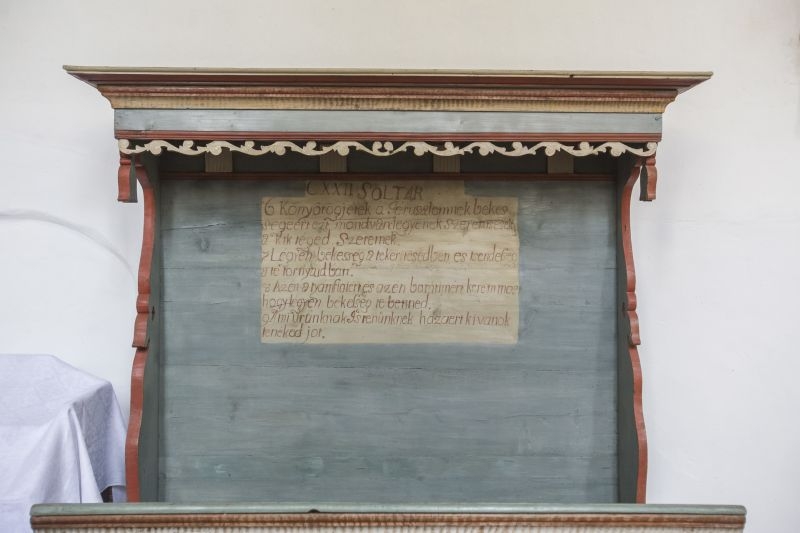 CXXII SOLTAR
6 Könyörögjetek a Jerusalemnek bekes
segeért ezt mondván legyenek Szerencsések
kik teged Szeretnek
7 Legyen bekesseg a te keritésedben es csendesseg
a te tornyaidban.
8 Az en atyamfiaiert es az en barátimert kerem most
hogy legyen bekesseg te benned.
9 A mi Urunknak Istenünknek házaert kivanok
tenéked jot.